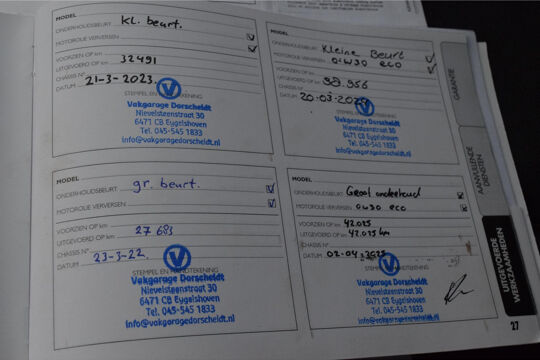 MODEL
kl. beurt.
ONDERHOUDSBEURT
MOTOROLIE VERVERSEN
VOORZIEN OP km
UITGEVOERD OP km 32491
CHASSIS N°
DATUM 21-3-2023.
STEMPEL EN
Vakgarage Dorscheidt
Nievelsteenstraat 30
6471 CB Eygelshoven
Tel. 045-545 1833
info@vakgaragedorscheidt.nl
MODEL
ONDERHOUDSBEURT gr. beurt.
MOTOROLIE VERVERSEN
VOORZIEN OP km
UITGEVOERD OP km 27683
CHASSIS N°
DATUM 23-3-22.
STEMPEL EN HANDTEKENING
Vakgarage Dorscheidt
Nievelsteenstraat 30
6471 CB Eygelshoven
Tel. 045-545 1833
info@vakgaragedorscheidt.nl
MODEL
ONDERHOUDSBEURT Kleine Beurt
MOTOROLIE VERVERSEN 0W30 eco
VOORZIEN OP km
UITGEVOERD OP km
CHASSIS N°
DATUM 20-03-202
STEMPEL EN
Vakgarage Dorscheidt
Nievelsteenstraat 30
6471 CB Eygelshoven
Tel. 045-545 1833
info@vakgaragedorscheidt.nl
MODEL
ONDERHOUDSBEURT Groot onderhoud
MOTOROLIE VERVERSEN 0W30 eco
VOORZIEN OP km 42.025
UITGEVOERD OP km 42.025 km
CHASSIS N°
DATUM 02-04-2025
HANDTEKENING
Vakgarage Dorscheidt
Nievelsteenstraat 30
6471 CB Eygelshoven
Tel. 045-545 1833
info@vakgaragedorscheidt.nl
GARANTIE
AANVULLENDE
DIENSTEN
UITGEVOERDE
WERKZAAMHEDEN
27